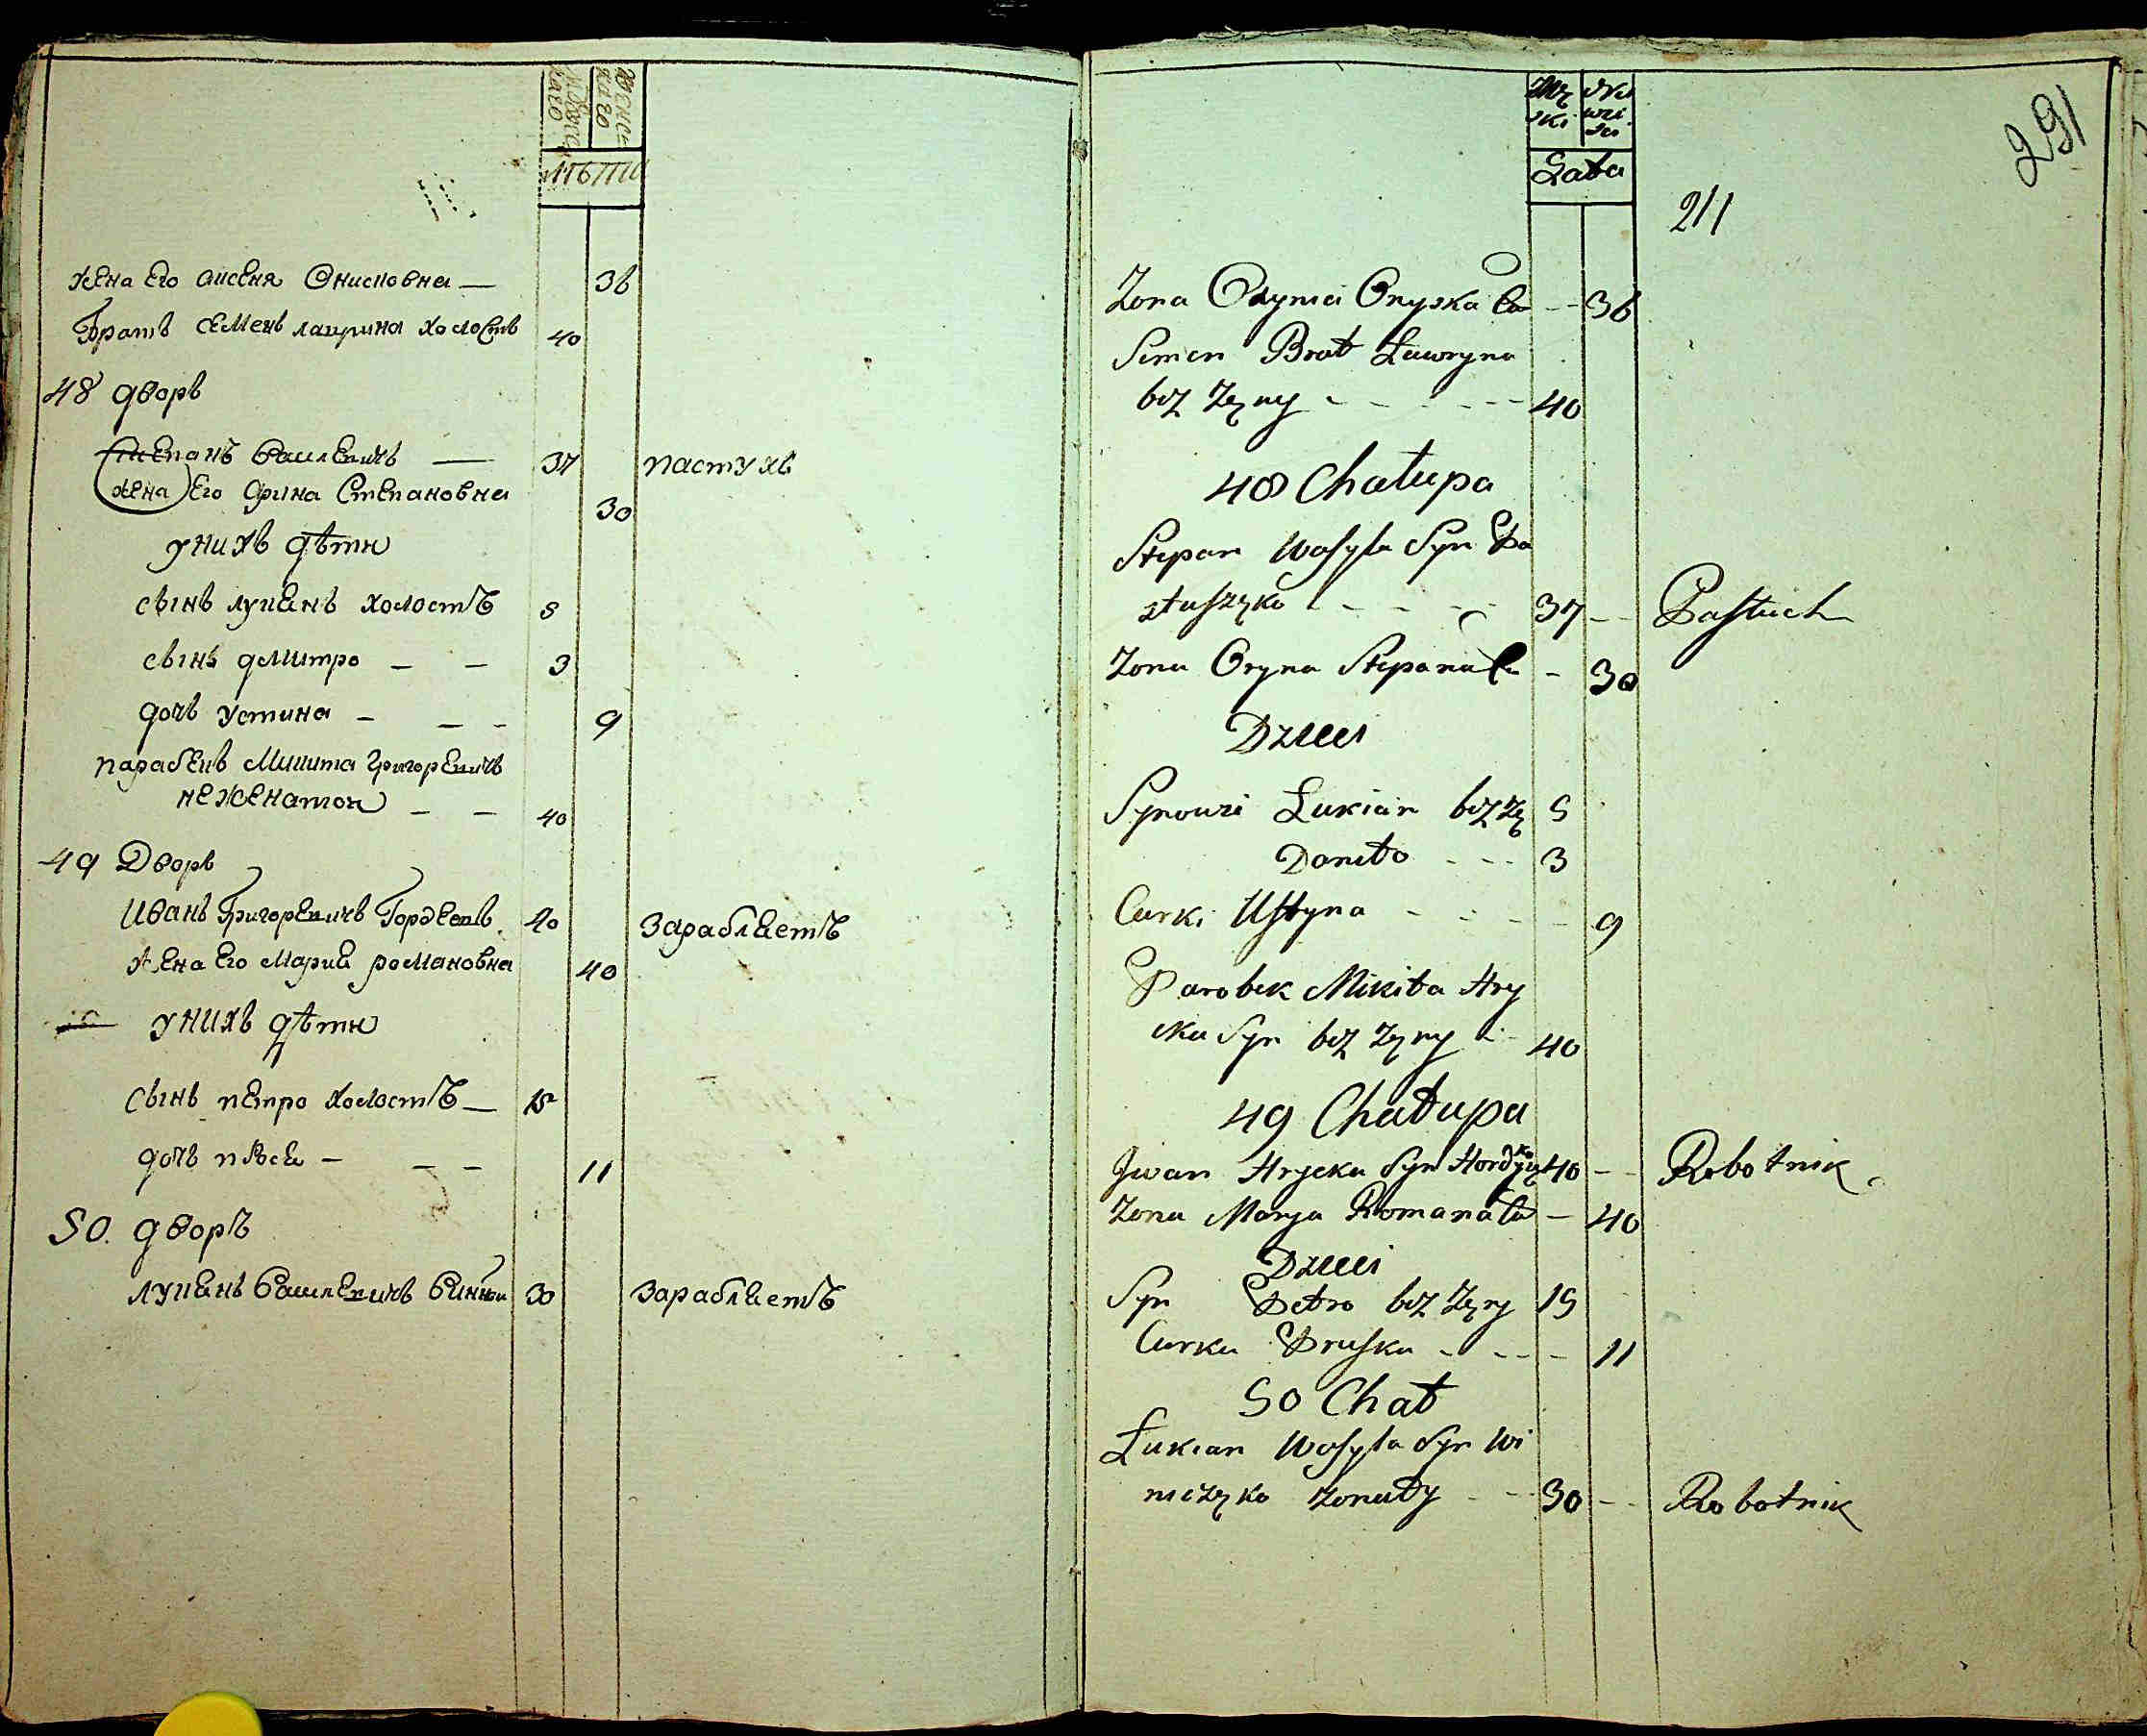 Мужеска
Женска
лѣта
жена Его аксеня Онисковна — 36
Братъ семенъ лаврина холостъ 40
48 дворъ
степанъ василевичъ — 37 пастухъ
жена Его орина Степановна 30
у нихъ дѣти
сынъ лукянъ холостъ 5
сынъ дмитро — — 3
дочь устина — — — 9
паробекъ микита григоревичъ
неженатои — — 40
49 Дворъ
иванъ Григоревичъ 40 зарабляетъ
жена Его Мария романовна 40
у нихъ дѣти
сынъ петро холостъ — 15
дочь — — — 11
50. дворъ
лукянъ василевичъ 30 зарабляетъ
291
Męski
Lata
211
Żona Oxynia Onyska Ca - - 36
Semen Brat Ławryna
bez Żęny - - - - - 40
48 Chałupa
Stepan Wasyla Syn Pa
stuszęko - - - - 37 - - Pastuch
Żona Oryna Stepana Ca - 30
Dzieci
Synowi Łukian bez Żę 5
Daniło - - - 3
Curki Ustyna - - - - - 9
Parobek Mikita Hry
cka Syn bez Żęny - - 40
49 Chałupa
Jwan Hrycka Syn 40 - - Robotnik
Żona Marya Romana Ca - 40
Dzieci
Syn Petro bez Żęny 15
Curka Pruska - - - - 11
50 Chał
Łukian Wasyla Syn Wi
niczęko żonaty - - 30 - - Robotnik